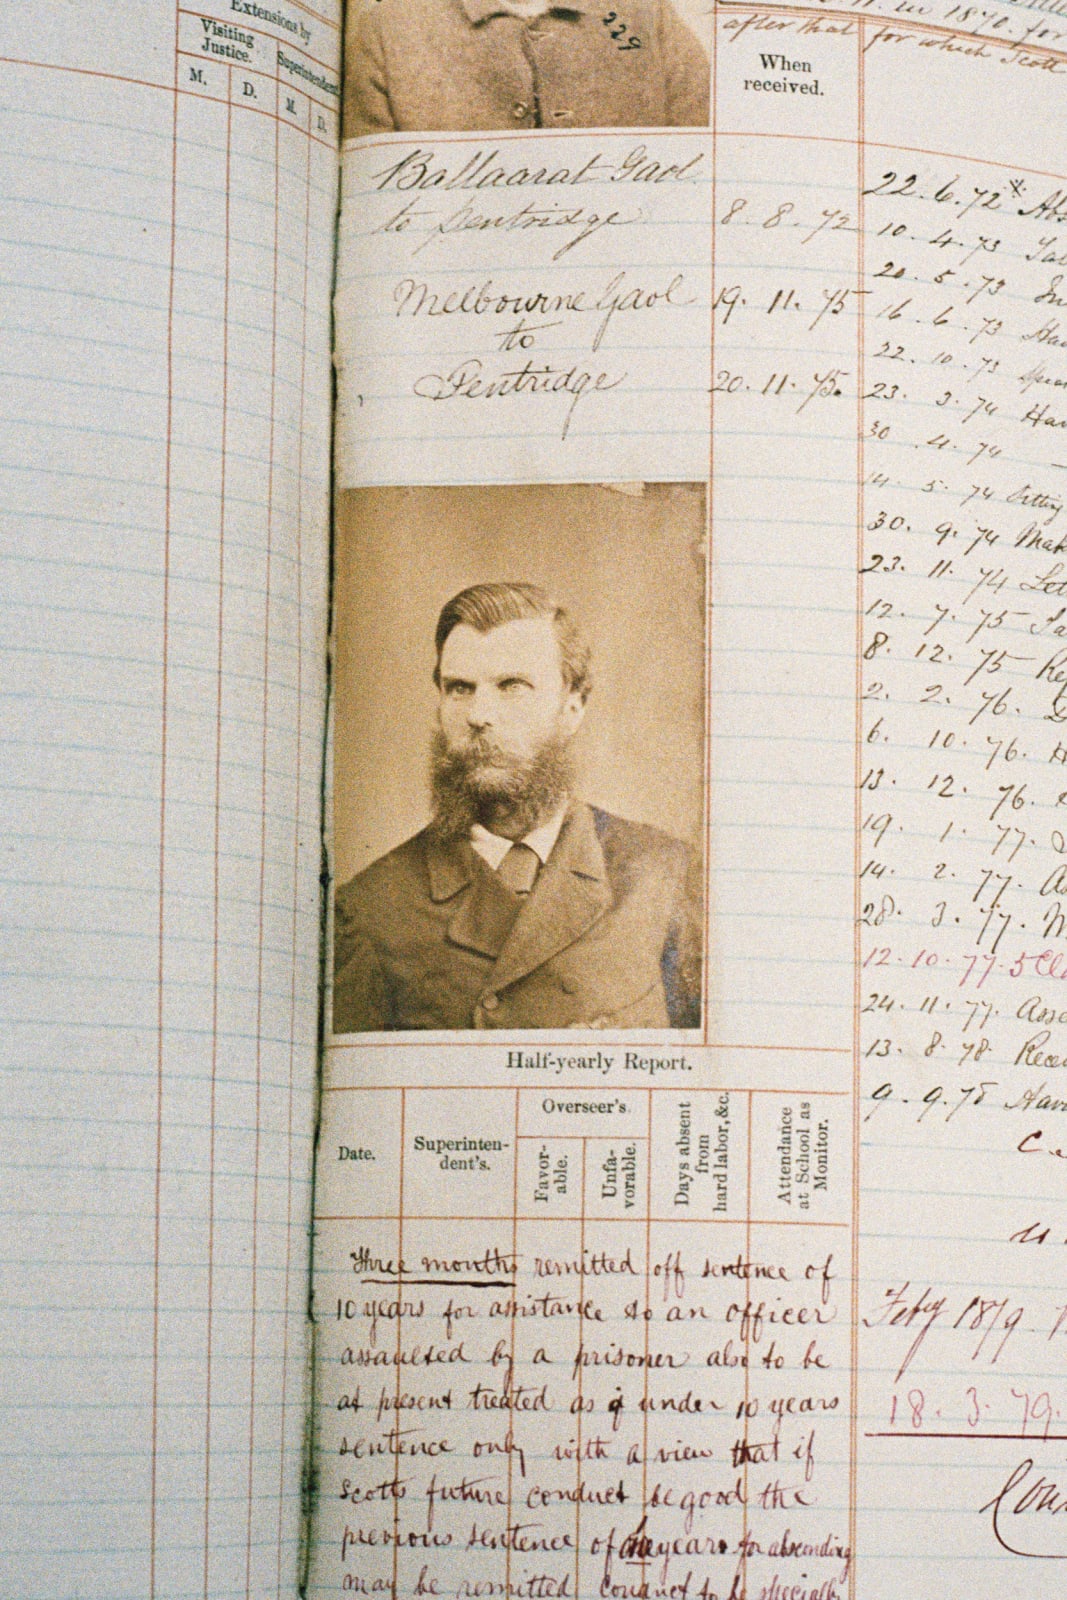 Extensions by
Visiting Justice.
Superintendent
M. D. M. D.
229
in 1870. for
after that for which Scott
When received.
Ballaarat Gaol
to Pentridge 8. 8. 72
Melbourne Gaol 19. 11. 75
to
Pentridge 20. 11. 75.
22. 6. 72* Abs
10. 4. 73
20. 5. 73
16. 6. 73
22. 10. 73
23. 3. 74 Hav
30 . 4. 74 —
14. 5. 74
30. 9. 74 Mak
23. 11. 74 Let
12. 7. 75
8. 12. 75
2. 2. 76.
6. 10. 76. H
13. 12. 76.
19. 1. 77.
14. 2. 77. As
28. 3. 77. M
12. 10. 77. 5 Cl
24. 11. 77. Asse
13. 8. 78. Rece
9. 9. 78 Havi
Half-yearly Report.
Date.
Superinten-
dent's.
Overseer's.
Favor-
able.
Unfa-
vorable.
Days absent
from
hard labor, &c.
Attendance
at School as
Monitor.
Three months remitted off sentence of
10 years for assistance to an officer
assaulted by a prisoner also to be
at present treated as if under 10 years
sentence only with a view that if
Scotts future conduct be good the
previous sentence of years for absconding
may be remitted conduct to be specially
Feby 1879.
18. 3. 79.